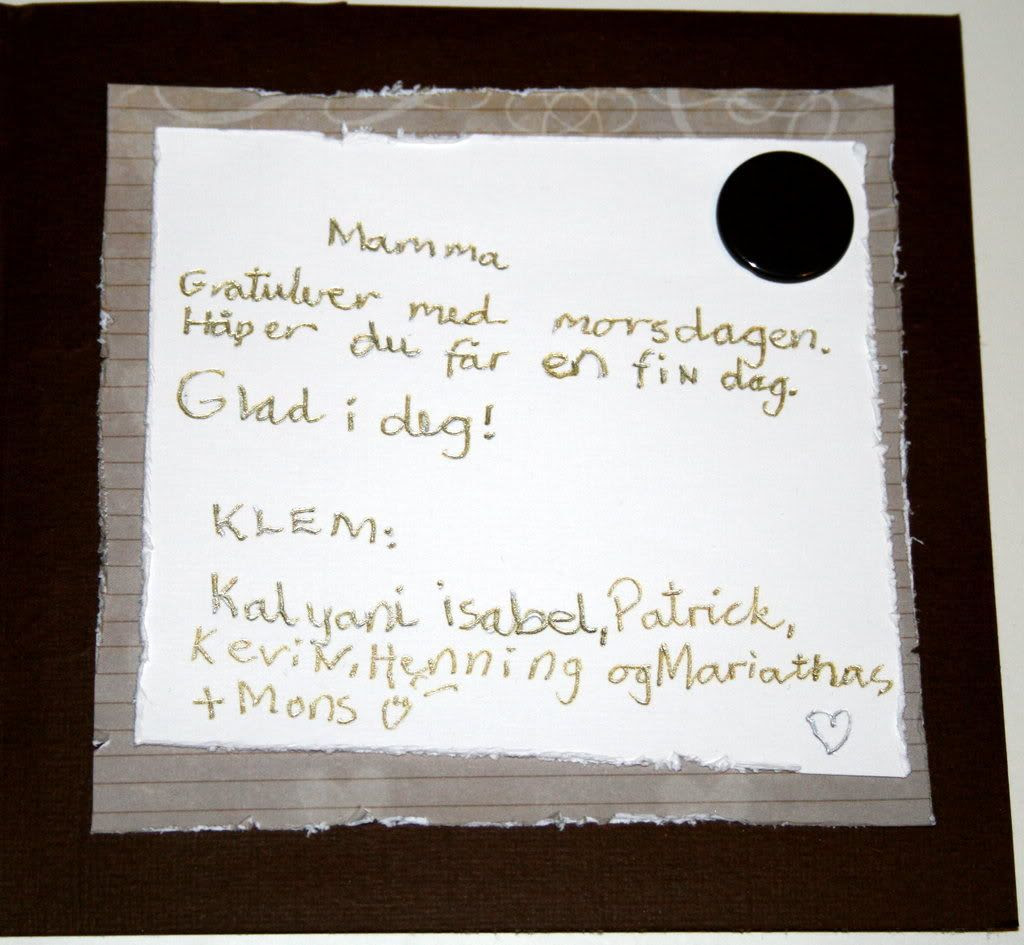 Mamma
Gratulerer med morsdagen.
Håper du får en fin dag.
Glad i deg!
KLEM:
Kalyani isabel, Patrick,
Kevin, Henning og Mariathas
+ Mons ☺